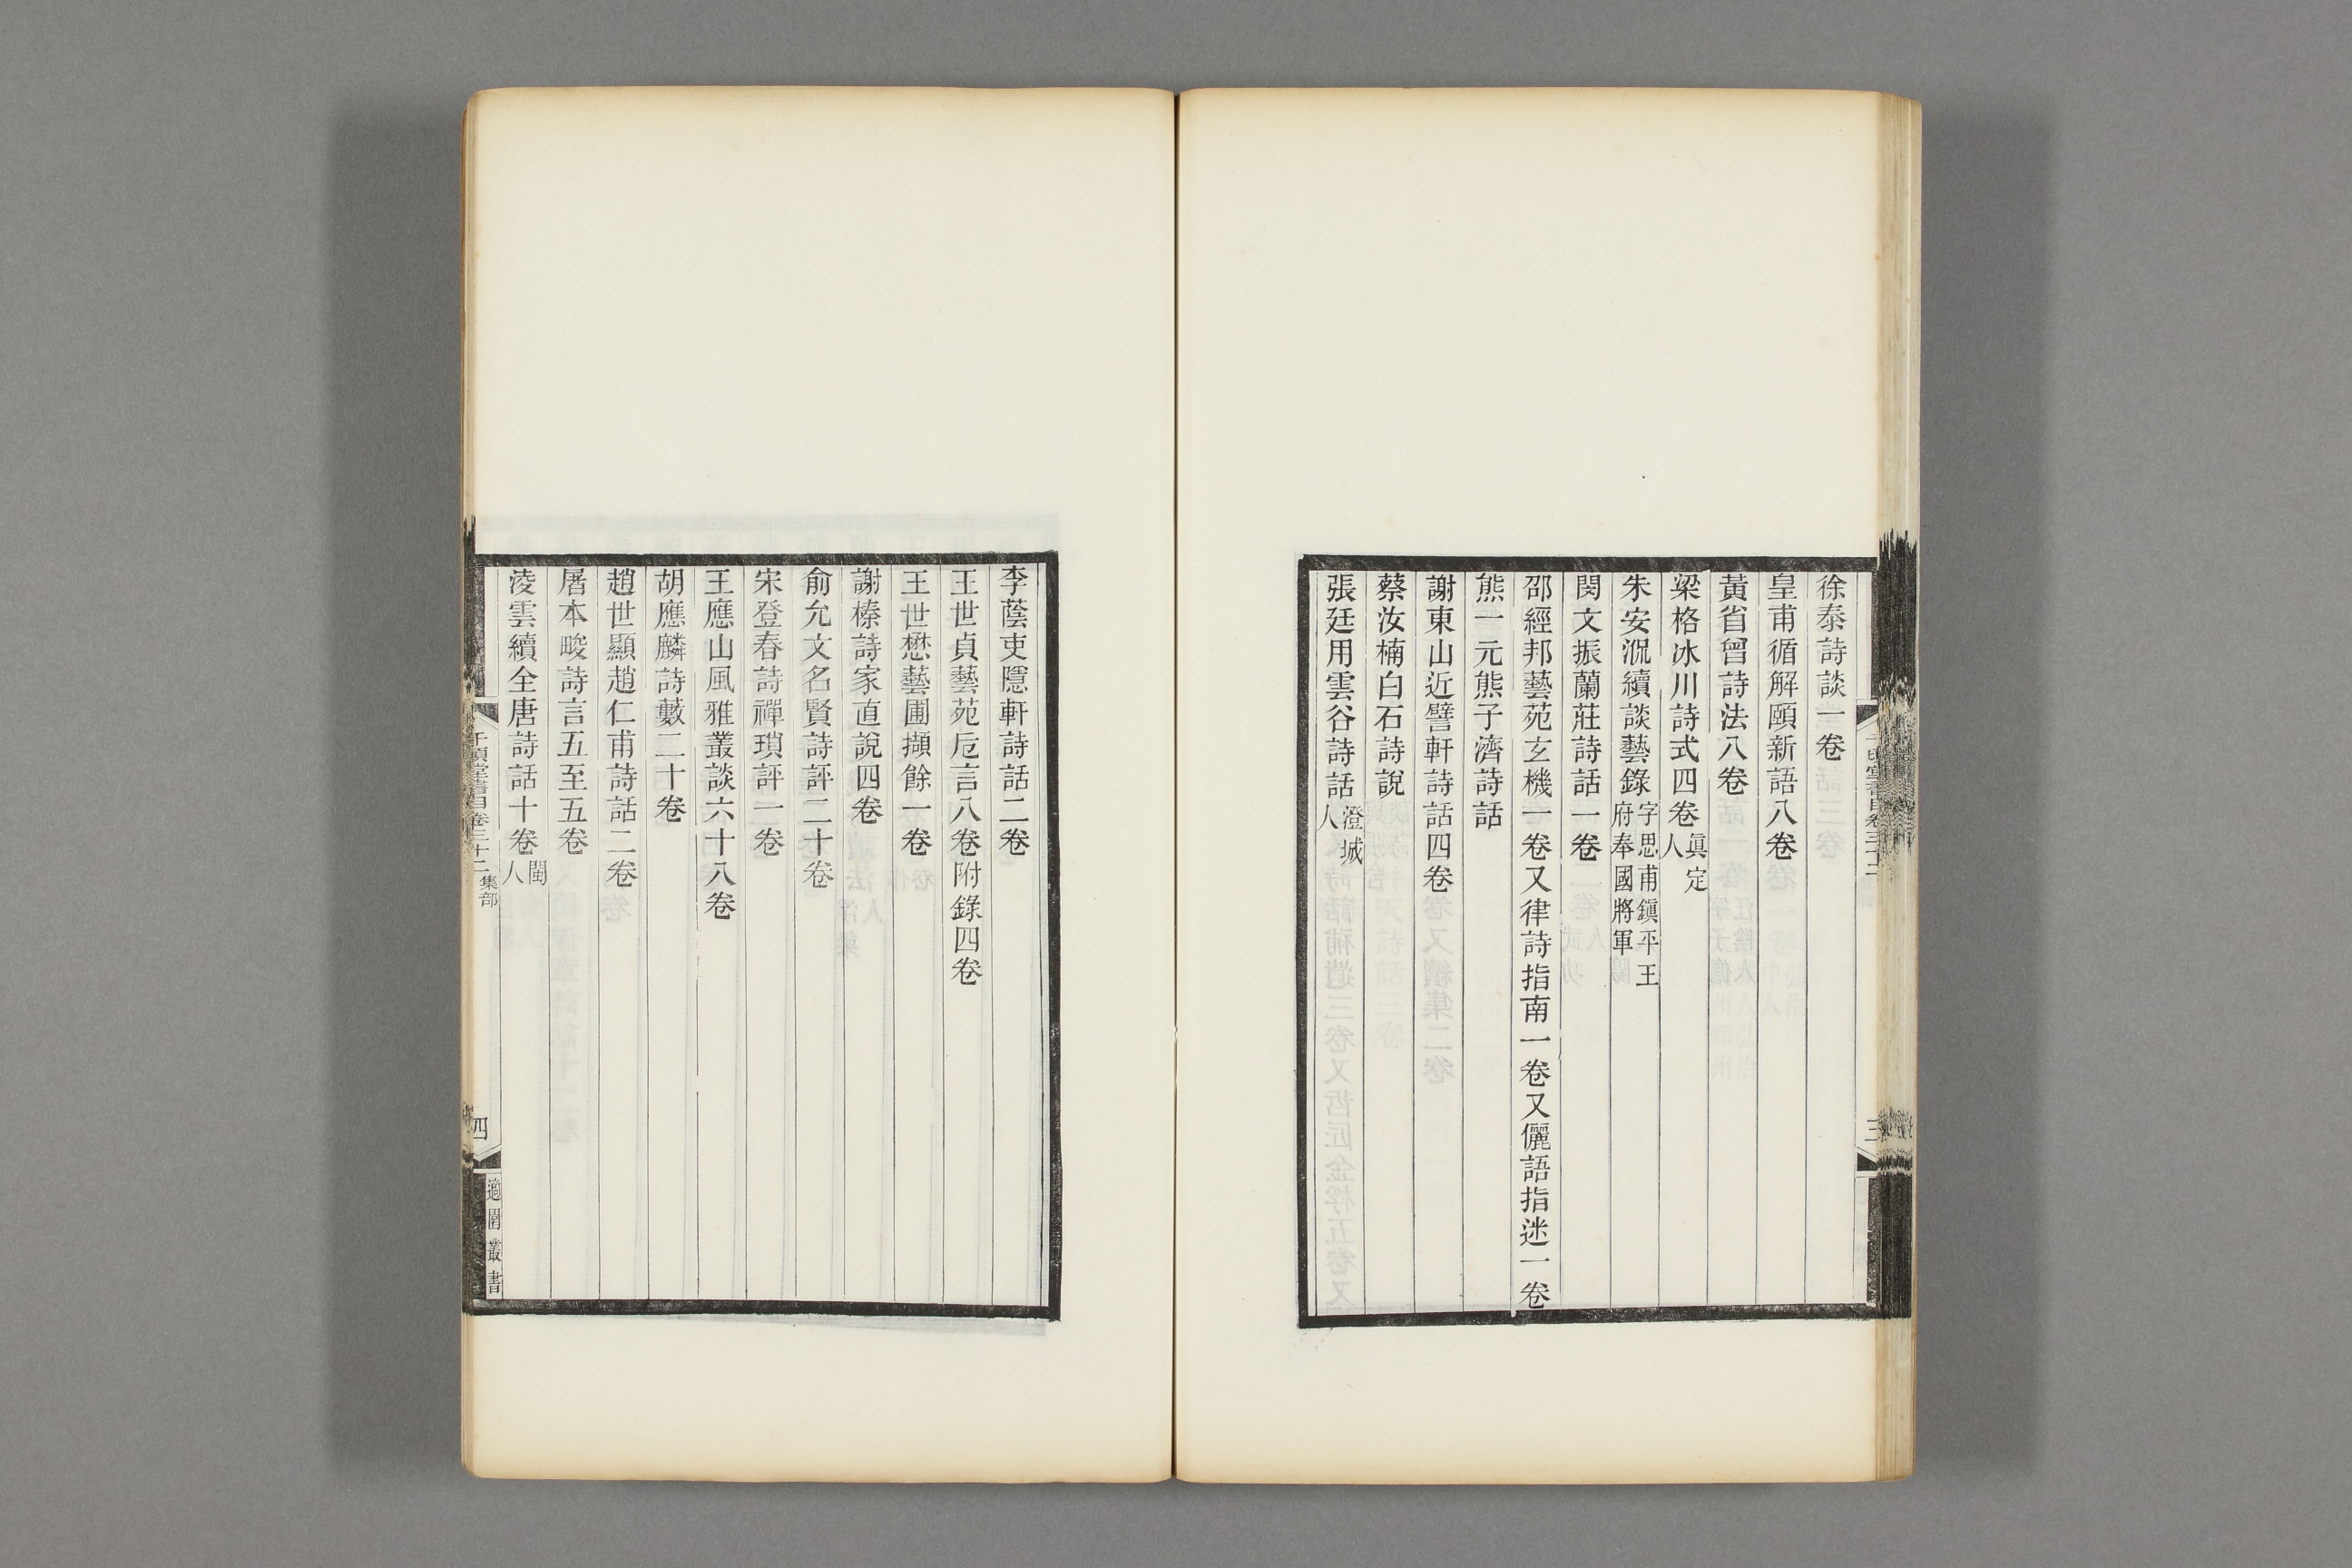 徐泰詩談一卷
皇甫循解頤新語八卷
黃省曾詩法八卷
梁格冰川詩式四卷眞定人
朱安㳦續談藝錄字思甫鎭平王府奉國將軍
閔文振蘭莊詩話一卷
邵經邦藝苑玄機一卷又律詩指南一卷又儷語指迷一卷
熊一元熊子濟詩話
謝東山近譬軒詩話四卷
蔡汝楠白石詩說
張廷用雲谷詩話澄城人
李蔭吏隱軒詩話二卷
王世貞藝苑卮言八卷附錄四卷
王世懋藝圃擷餘一卷
謝榛詩家直說四卷
俞允文名賢詩評二十卷
宋登春詩禪瑣評一卷
王應山風雅叢談六十八卷
胡應麟詩藪二十卷
趙世顯趙仁甫詩話二卷
屠本畯詩言五至五卷
淩雲續全唐詩話十卷閩人
千頃堂書目卷三十二 集部
四
適園叢書